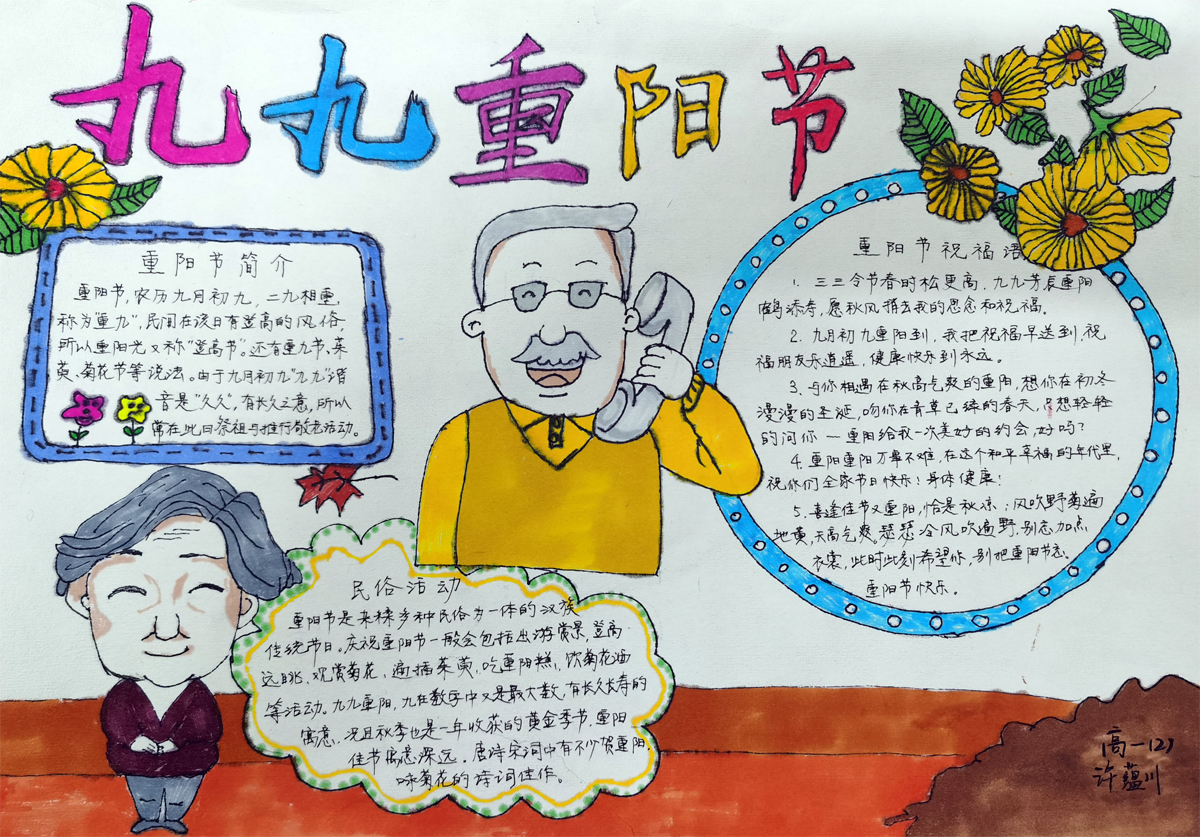 九九重阳节
重阳节简介
重阳节，农历九月初九，二九相重，
称为"重九"，民间在该日有登高的风俗，
所以重阳光又称"登高节"。还有重九节、茱
萸、菊花节等说法。由于九月初九"九九"谐
音是"久久"，有长久之意，所以
常在此日祭祖与推行敬老活动。
民俗活动
重阳节是杂糅多种民俗为一体的汉族
传统节日。庆祝重阳节一般会包括出游赏景、登高
远眺、观赏菊花、遍插茱萸、吃重阳糕、饮菊花酒
等活动。九九重阳，九在数字中又是最大数，有长久长寿的
寓意，况且秋季也是一年收获的黄金季节，重阳
佳节寓意深远。唐诗宋词中有不少贺重阳，
咏菊花的诗词佳作。
重阳节祝福语
1. 三三令节春时松更高，九九芳辰重阳
鹤添寿，愿秋风捎去我的思念和祝福。
2. 九月初九重阳到，我把祝福早送到，祝
福朋友乐逍遥，健康快乐到永远。
3、与你相遇在秋高气爽的重阳，想你在初冬
漫漫的圣诞，吻你在青草已绿的春天，只想轻轻
的问你—重阳给我一次美好的约会，好吗？
4. 重阳重阳万事不难，在这个和平幸福的年代里，
祝你们全家节日快乐！身体健康！
5、喜逢佳节又重阳，恰是秋凉；风吹野菊遍
地黄，天高气爽。瑟瑟冷风吹遍野，别忘加点
衣裳，此时此刻希望你，别把重阳节忘。
重阳节快乐。
高一(2)
许蕴川